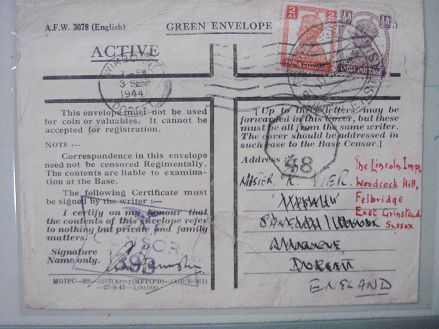 A.F.W. 3078 (English)
GREEN ENVELOPE
ACTIVE
3 SEP
1944
DORSET
This envelope must not be used
for coin or valuables. It cannot be
accepted for registration.
NOTE :—
Correspondence in this envelope
need not be censored Regimentally.
The contents are liable to examina-
tion at the Base.
The following Certificate must
be signed by the writer :—
I certify on my honour that
the contents of this envelope refer
to nothing but private and family
matters.
Signature
Name only.
(Up to three letters may be
forwarded in this cover, but these
must be all from the same writer.
The cover should be addressed in
such case to the Base Censor.)
Address
48
The Lincoln Imp,
Woodcock Hill,
Felbridge
East Grinstead
Sussex
DORSET
ENGLAND